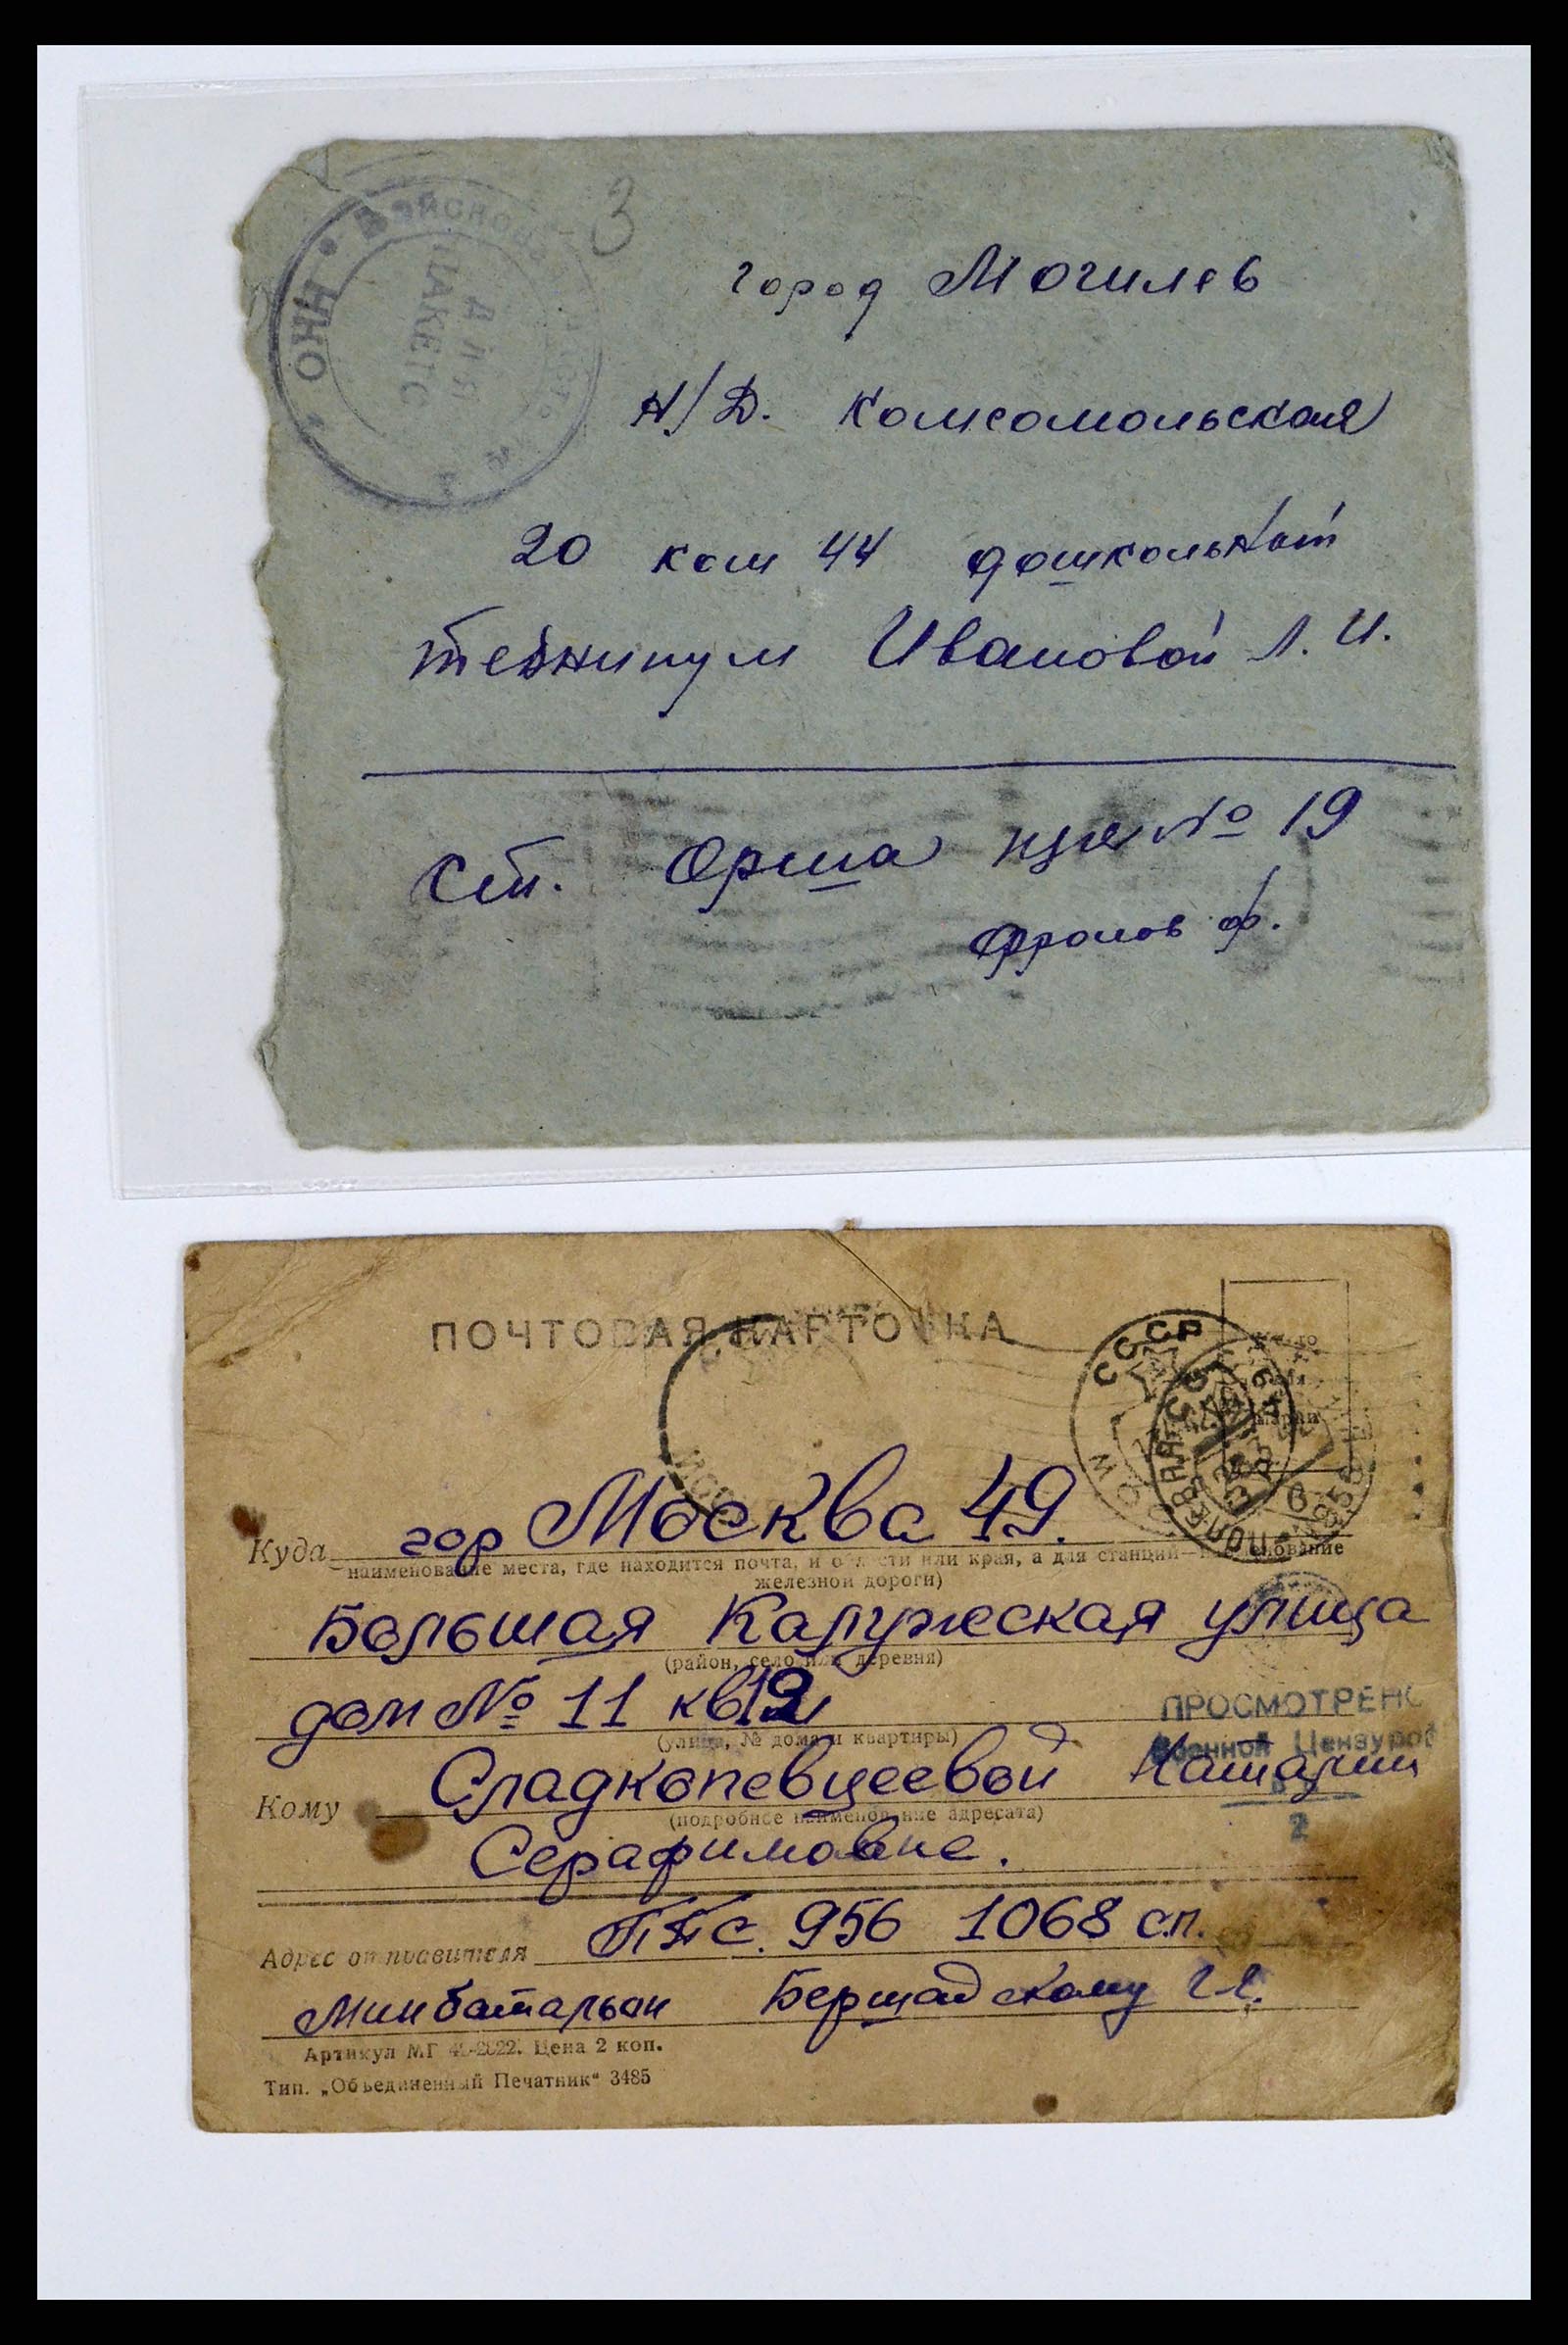 3
Войсковая часть
ННО
Для
пакетс
город Могилев
Н/Д. Комсомольская
20 ком 44 дошкольный
техникум Ивановой Л. И.
ст. Орша № 19
Фролов Ф.
ПОЧТОВАЯ КАРТОЧКА
СССР
ПОЛЕВАЯ
Куда гор Москва 49.
наименование места, где находится почта, и области или края, а для станций—наименование
железной дороги)
Большая Калужская улица
(район, село или деревня)
дом № 11 кв 12
(улица, № дома и квартиры)
ПРОСМОТРЕНО
Военной Цензурой
2
Кому Сладкопевцеевой Наталии
(подробное наименование адресата)
Серафимовне.
Адрес отправителя ППС. 956 1068 с.п.
Минбатальон Бершадскому
Артикул МГ Цена 2 коп.
Тип. „Объединенный Печатник“ 3485